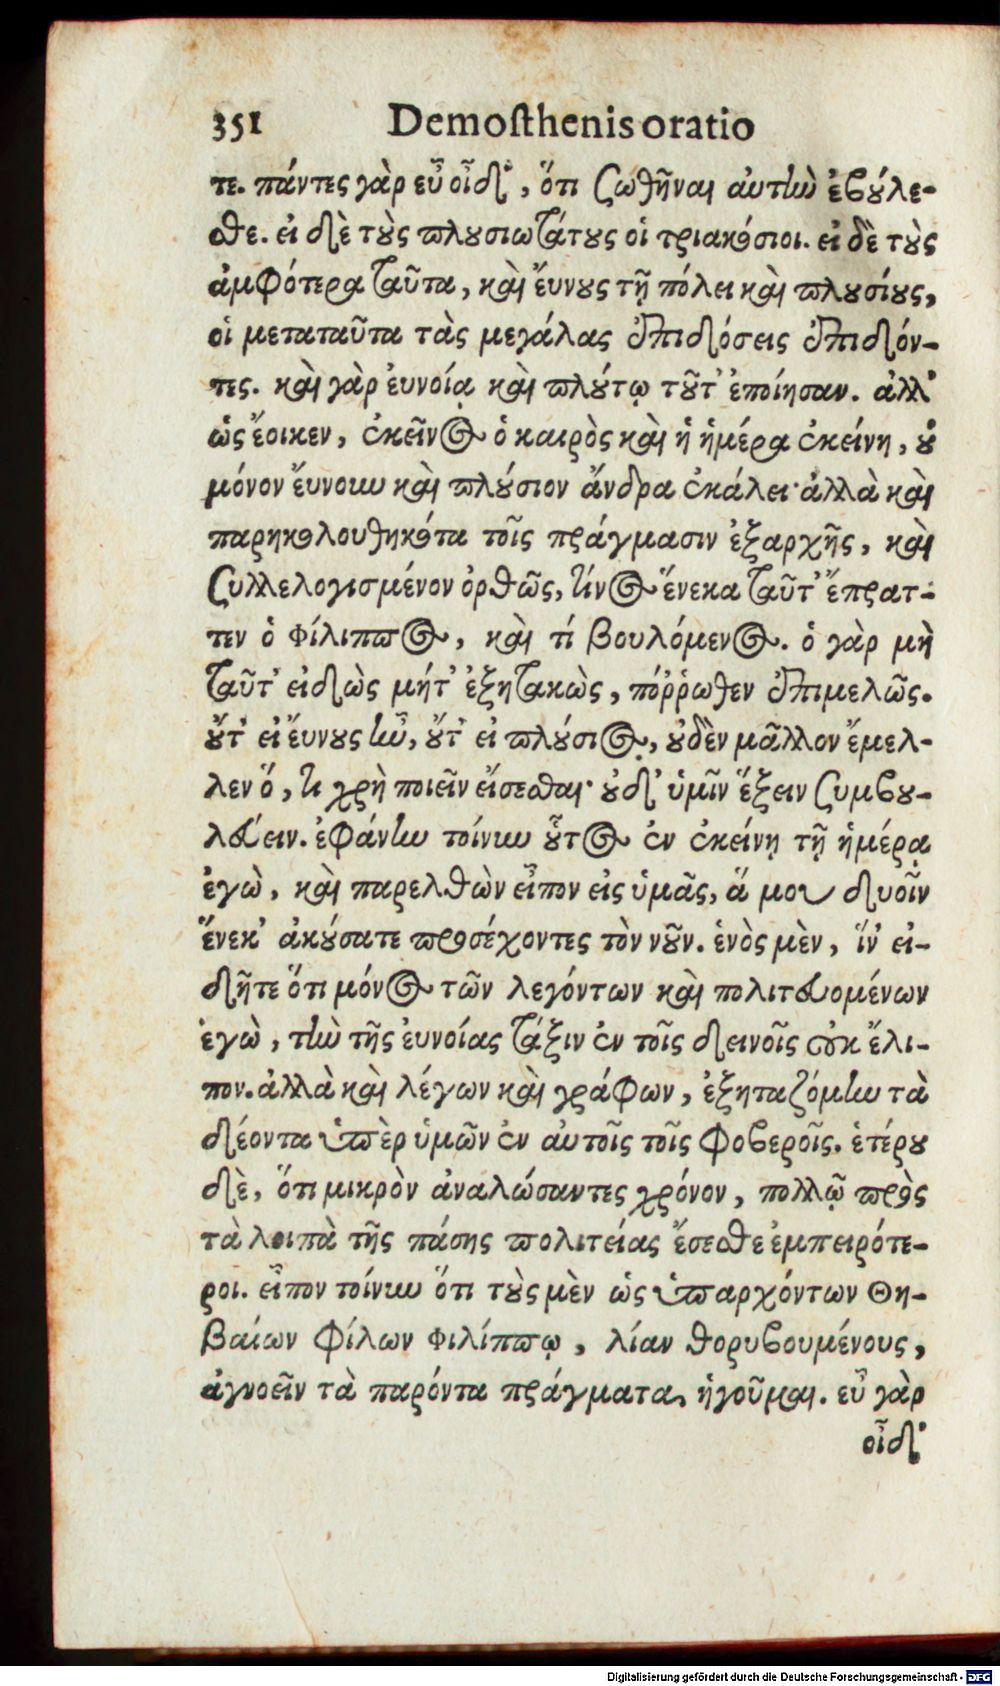 351 Demosthenis oratio
τε. πάντες γὰρ εὖ οἶδ', ὅτι ζωθῆναι αὐτὼ ἐβούλε-
σθε. εἰ δὲ τοὺς πλουσιωτάτους οἱ τριακόσιοι. εἰ δὲ τοὺς
ἀμφότερα ταῦτα, καὶ ἔυνους τῇ πόλει καὶ πλουσίους,
οἱ μεταταῦτα τὰς μεγάλας ἐπιδόσεις ἐπιδόν-
τες. καὶ γὰρ ἐυνοίᾳ καὶ πλούτῳ τοῦτ' ἐποίησαν. ἀλλ'
ὡς ἔοικεν, ἐκεῖνος ὁ καιρὸς καὶ ἡ ἡμέρα ἐκείνη, οὐ
μόνον ἔυνουν καὶ πλούσιον ἄνδρα ἐκάλει· ἀλλὰ καὶ
παρηκολουθηκότα τοῖς πράγμασιν ἐξαρχῆς, καὶ
συλλελογισμένον ὀρθῶς, τίνος ἕνεκα ταῦτ' ἔπρατ-
τεν ὁ Φίλιππος, καὶ τί βουλόμενος. ὁ γὰρ μὴ
ταῦτ' εἰδὼς μήτ' ἐξητακὼς, πόῤῥωθεν ἐπιμελῶς.
οὔτ' εἰ ἔυνους ἦν, οὔτ' εἰ πλούσιος, οὐδὲν μᾶλλον ἔμελ-
λεν ὅ, τι χρὴ ποιεῖν εἴσεσθαι· οὐδ' ὑμῖν ἕξειν συμβου-
λεύειν. ἐφάνην τοίνυν οὗτος ἐν ἐκείνῃ τῇ ἡμέρᾳ
ἐγὼ, καὶ παρελθὼν εἶπον εἰς ὑμᾶς, ἅ μου δυοῖν
ἕνεκ' ἀκούσατε προσέχοντες τὸν νοῦν. ἑνὸς μὲν, ἵν' εἰ-
δῆτε ὅτι μόνος τῶν λεγόντων καὶ πολιτευομένων
ἐγὼ, τὴν τῆς ἐυνοίας τάξιν ἐν τοῖς δεινοῖς οὐκ ἔλι-
πον. ἀλλὰ καὶ λέγων καὶ γράφων, ἐξηταζόμην τὰ
δέοντα ὑπὲρ ὑμῶν ἐν αὐτοῖς τοῖς φοβεροῖς. ἑτέρου
δὲ, ὅτι μικρὸν ἀναλώσαντες χρόνον, πολλῷ πρὸς
τὰ λοιπὰ τῆς πάσης πολιτείας ἔσεσθε ἐμπειρότε-
ροι. εἶπον τοίνυν ὅτι τοὺς μὲν ὡς ὑπαρχόντων Θη-
βαίων φίλων Φιλίππῳ, λίαν θορυβουμένους,
ἀγνοεῖν τὰ παρόντα πράγματα, ἡγοῦμαι. εὖ γὰρ
οἶδ'
Digitalisierung gefördert durch die Deutsche Forschungsgemeinschaft - DFG